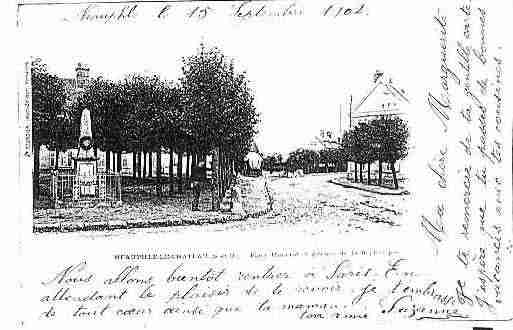 Neauphle le 15 Septembre 1904.
NEAUPHLE-LE-CHATEAU (S.-et-O.) Place
Nous allons bientôt rentrer à Paris. En
attendant le plaisir de te revoir, je t'embrasse
de tout cœur ainsi que ta maman.
ton amie Suzanne
Ma chère Marguerite
Je te remercie de ta gentille carte
J'espère que tu passes de bonnes
vacances avec tes cousines.